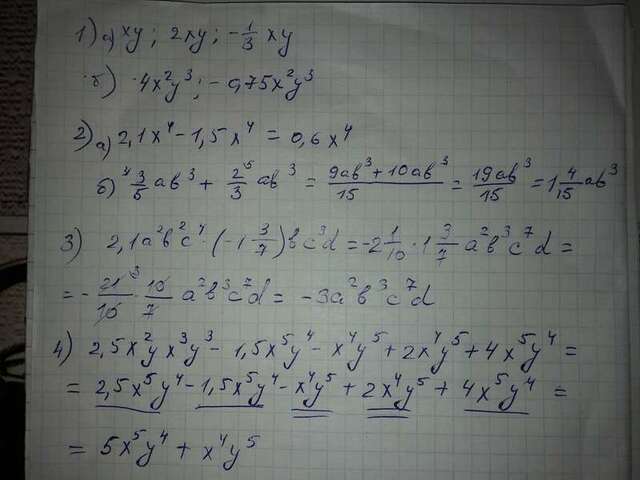 1) а) xy; 2xy; -1/3 xy
б) 4x²y³; -0,75x²y³
2) а) 2,1x⁴ - 1,5x⁴ = 0,6x⁴
б) 3/5 ab³ + 2/3 ab³ = (9ab³ + 10ab³)/15 = 19ab³/15 = 1 4/15 ab³
3) 2,1a²b²c⁴ · (-1 3/7) bc³d = -2 1/10 · 1 3/7 a²b³c⁷d =
= - 21/10 · 10/7 a²b³c⁷d = -3a²b³c⁷d
4) 2,5x²yx³y³ - 1,5x⁵y⁴ - x⁴y⁵ + 2xy⁴y⁵ + 4x⁵y⁴ =
= 2,5x⁵y⁴ - 1,5x⁵y⁴ - x⁴y⁵ + 2x⁴y⁵ + 4x⁵y⁴ =
= 5x⁵y⁴ + x⁴y⁵